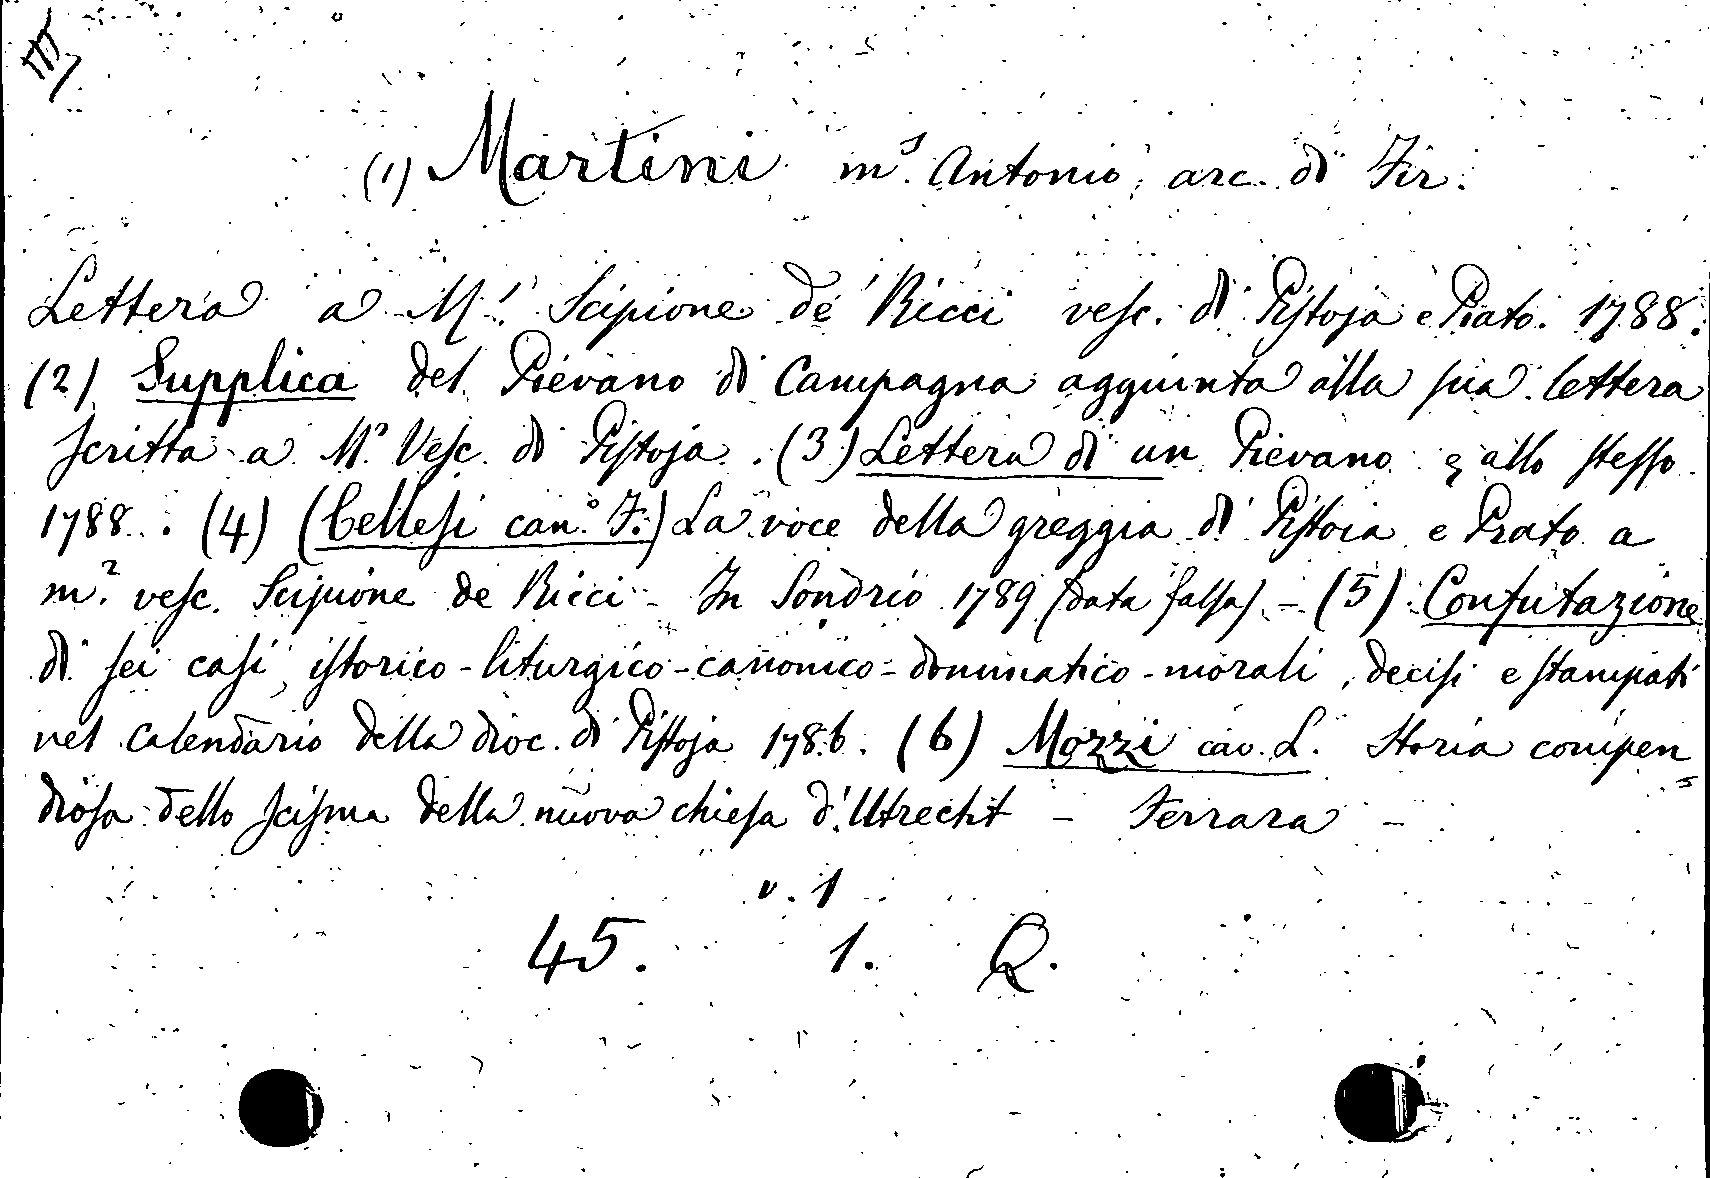 (1) Martini m.r Antonio, arc. di Fir.
Lettera a M.r Scipione de' Ricci vesc. di Pistoja e Prato. 1788.
(2) Supplica del Pievano di Campagna aggiunta alla sua lettera
scritta a M.r Vesc. di Pistoja. (3) Lettera di un Pievano allo stesso
1788. (4) (Cellesi can.o F.) La voce della greggia di Pistoia e Prato a
m.r vesc. Scipione de Ricci - In Sondrio 1789 (data falsa). - (5) Confutazione
di sei casi, istorico-liturgico-canonico-dommatico-morali, decisi e stampati
nel calendario della dioc. di Pistoja 1786. (6) Mozzi cav. L. Storia compen
diosa dello scisma della nuova chiesa d'Utrecht - Ferrara -
v. 1
45. 1. Q.